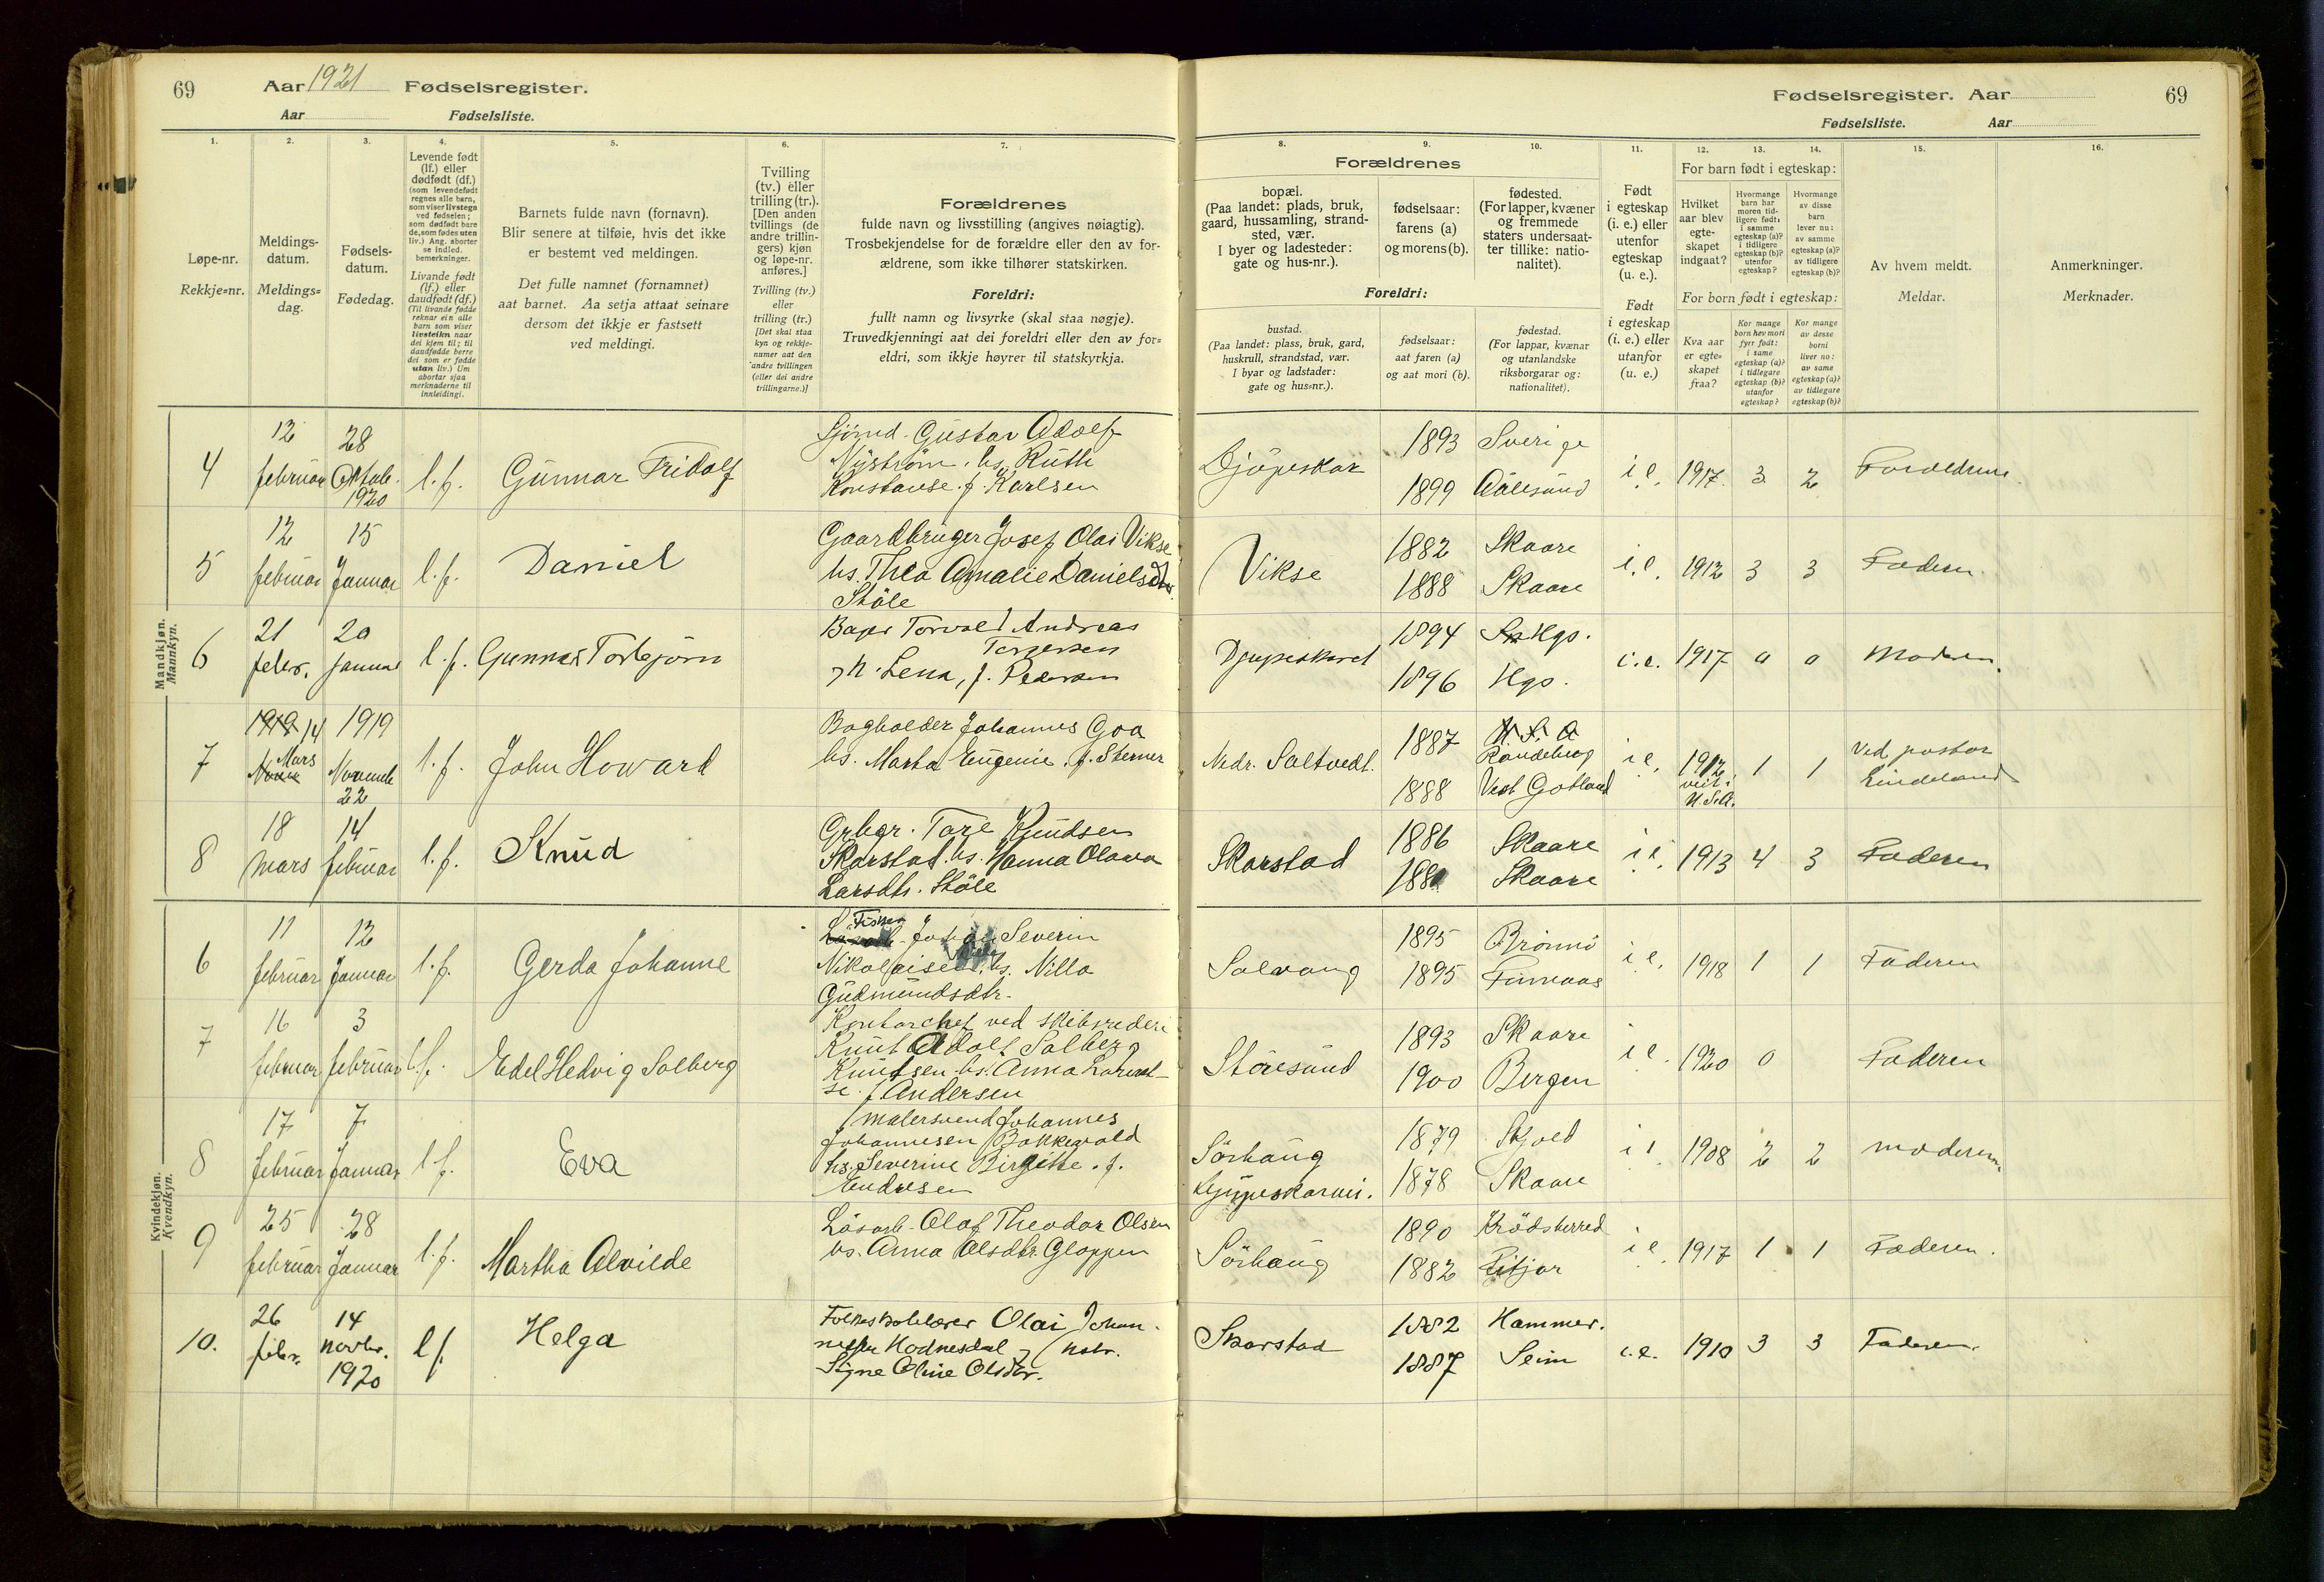 69
Aar 1921 Fødselsregister.
Aar Fødselsliste.
Fødselsregister. Aar
69
Fødselsliste. Aar
1.
Løpe-nr.
Rekkje=nr.
2.
Meldings-
datum.
Meldings=
dag.
3.
Fødsels-
datum.
Fødedag.
4.
Levende født
(lf.) eller
dødfødt (df.)
(som levendefødt
regnes alle barn,
som viser livstegn
ved fødselen;
som dødfødt bare
de, som fødes uten
liv.) Ang. aborter
se indled.
bemerkninger.
Livande født
(lf.) eller
daudfødt (df.)
(Til livande fødde
reknar ein alle
barn som viser
livsteikn naar
dei kjem til; til
daudfødde berre
dei som er fødde
utan liv.) Um
abortar sjaa
merknaderne til
innleidingi.
5.
Barnets fulde navn (fornavn).
Blir senere at tilføie, hvis det ikke
er bestemt ved meldingen.
Det fulle namnet (fornamnet)
aat barnet. Aa setja attaat seinare
dersom det ikkje er fastsett
ved meldingi.
6.
Tvilling
(tv.) eller
trilling (tr.).
[Den anden
tvillings (de
andre trillin-
gers) kjøn
og løpe-nr.
anføres.]
Tvilling (tv.)
eller
trilling (tr.)
[Det skal staa
kyn og rekkje-
numer aat den
andre tvillingen
(eller dei andre
trillingarne.)]
7.
Forældrenes
fulde navn og livsstilling (angives nøiagtig).
Trosbekjendelse for de forældre eller den av for-
ældrene, som ikke tilhører statskirken.
Foreldri:
fullt namn og livsyrke (skal staa nøgje).
Truvedkjenningi aat dei foreldri eller den av for=
eldri, som ikkje høyrer til statskyrkja.
8.
9.
10.
Forældrenes
bopæl.
(Paa landet: plads, bruk,
gaard, hussamling, strand-
sted, vær.
I byer og ladesteder:
gate og hus-nr.).
fødselsaar:
farens (a)
og morens (b).
fødested.
(For lapper, kvæner
og fremmede
staters undersaat-
ter tillike: natio-
nalitet).
Foreldri:
bustad.
(Paa landet: plass, bruk, gard,
huskrull, strandstad, vær.
I byar og ladstader:
gate og hus=nr.).
fødselsaar:
aat faren (a)
og aat mori (b).
fødestad.
(For lappar, kvænar
og utanlandske
riksborgarar og:
nationalitet).
11.
Født
i egteskap
(i. e.) eller
utenfor
egteskap
(u. e.).
Født
i egteskap
(i. e.) eller
utanfor
(u. e.)
12.
13.
14.
For barn født i egteskap:
Hvilket
aar blev
egte-
skapet
indgaat?
Hvormange
barn har
moren tid-
ligere født:
i samme
egteskap (a)?
i tidligere
egteskap (b)?
utenfor
egteskap?
Hvormange
av disse
barn
lever nu:
av samme
egteskap (a)?
av tidligere
egteskap (b)?
For born født i egteskap:
Kva aar
er egte=
skapet
fraa?
Kor mange
born hev mori
fyrr født:
i same
egteskap (a)?
i tidlegare
egteskap (b)?
utanfor
egteskap?
Kor mange
av desse
borni
liver no:
av same
egteskap (a)?
av tidlegare
egteskap (b)?
15.
Av hvem meldt.
Meldar.
16.
Anmerkninger.
Merknader.
Mandkjøn.
Mannkyn.
4
12
februar
28
Oktob.
1920
l.f.
Gunnar Fridolf
Sjömd. Gustav Adolf
Nyström. hs. Ruth
Konstanse. f. Karlsen
Djúpeskar
1893
1899
Sverige
Aalesund
i.e.
1917.
3
2
Forældrene
5
12
februar
15
Januar
l.f.
Daniel
Gaardbruger Josef Olai Vikse
hs. Thea Amalie Danielsdtr.
Stöle
Vikse
1882
1888
Skaare
Skaare
i.e.
1912
3
3
Faderen
6
21
febr.
20
januar
l.f.
Gunnar Torbjörn
Bager Torvald Andreas
Torgersen
Lena, f. Pedersen
Djupeskaret
1894
1896
Hgs.
Hgs.
i.e.
1917
0
0
Moderen.
7
1919 14
Mars
1919
Novemb
22
l.f.
John Howard
Bogholder Johannes Goa
hs. Marta Eugenie. f. Sterner
Nedr. Saltvedt.
1887
1888
U.S.A
Randeberg
Vest Gotland
i e.
1912
viet i
U.S.A.
1
1
Ved pastor
Lindeland
8
18
mars
14
februar
l.f.
Knud
Grbgr. Tore Knudsen
Skarstad. hs. Hanna Olava
Larsdtr. Stöle
Skarstad
1886
188
Skaare
Skaare
i e.
1913
4
3
Faderen
Kvindekjøn.
Kvendkyn.
6
11
februar
12
Januar
l.f.
Gerda Johanne
Fisker
Johan Severin
Nikolaisen hs. Nilla
Gudmundsdtr.
Solvang
1895
1895
Brönnö
Finnaas
i e.
1918
1
1
Faderen
7
16
februar
3
februar
l.f.
Edel Hedvig Solberg
Kontorchef ved skibsrederi
Knut Adolf Solberg
Knudsen. hs. Anna
f. Andersen
Störesund
1893
1900
Skaare
Bergen
i e.
1920
0
Faderen
8
17
februar
7
Januar
l.f.
Eva
Malersvend Johannes
Johannesen Bakkevold
hs. Severine Birgitte. f.
Endresen
Sörhaug
1879
1878
Skjold
Skaare
1908
2
2
moderen.
9
25
februar
28
Januar
l.f.
Martha Alvilde
Lösarb. Olaf Theodor Olsen
hs. Anna Olsdtr. Gloppen
Sörhaug
1890
1882
Krödsherred
Fitjar
i e.
1917
1
1
Faderen.
10.
26
febr.
14
novbr.
1920
lf.
Helga
Folkeskolelærer Olai Johan-
nessen Hodnesdal
Signe Oline Olsdtr.
Skarstad
1882
1887
Hammer.
Seim
i.e.
1910
3
3
Faderen.